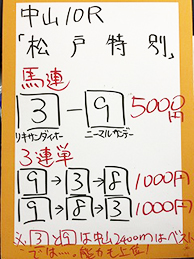 中山10R
「松戸特別」
馬連
3-9 5000円
リキサンダイオー ニーマルサンデー
3連単
9→3→8 1000円
9→8→3 1000円
※3と9は中山2400mはベスト
では‥‥、能力も上位!